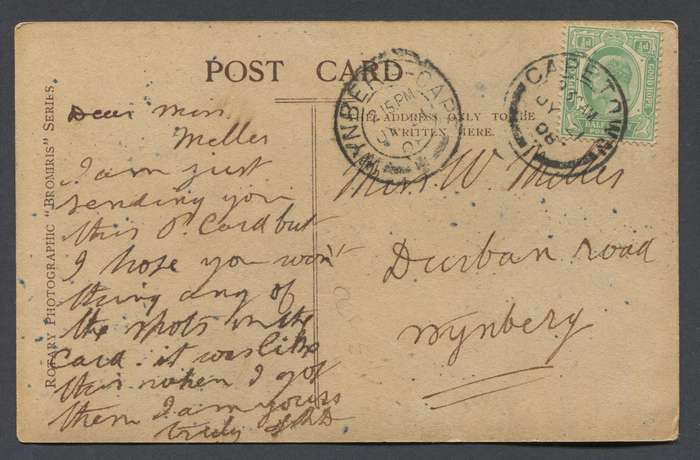 POST CARD
ROTARY PHOTOGRAPHIC "BROMIRIS" SERIES.
THE ADDRESS ONLY TO BE
WRITTEN HERE.
Dear Miss
Meller
I am just
sending you
this P. Card but
I hope you won't
thing any of
the spots on the
Card. it was like
this when I got
them I am yours
truly
Miss W Meller
Durban road
Wynberg
WYNBERG-CAPE
15 PM
CAPE TOWN
PM
JY
08
½d ½d
HALF